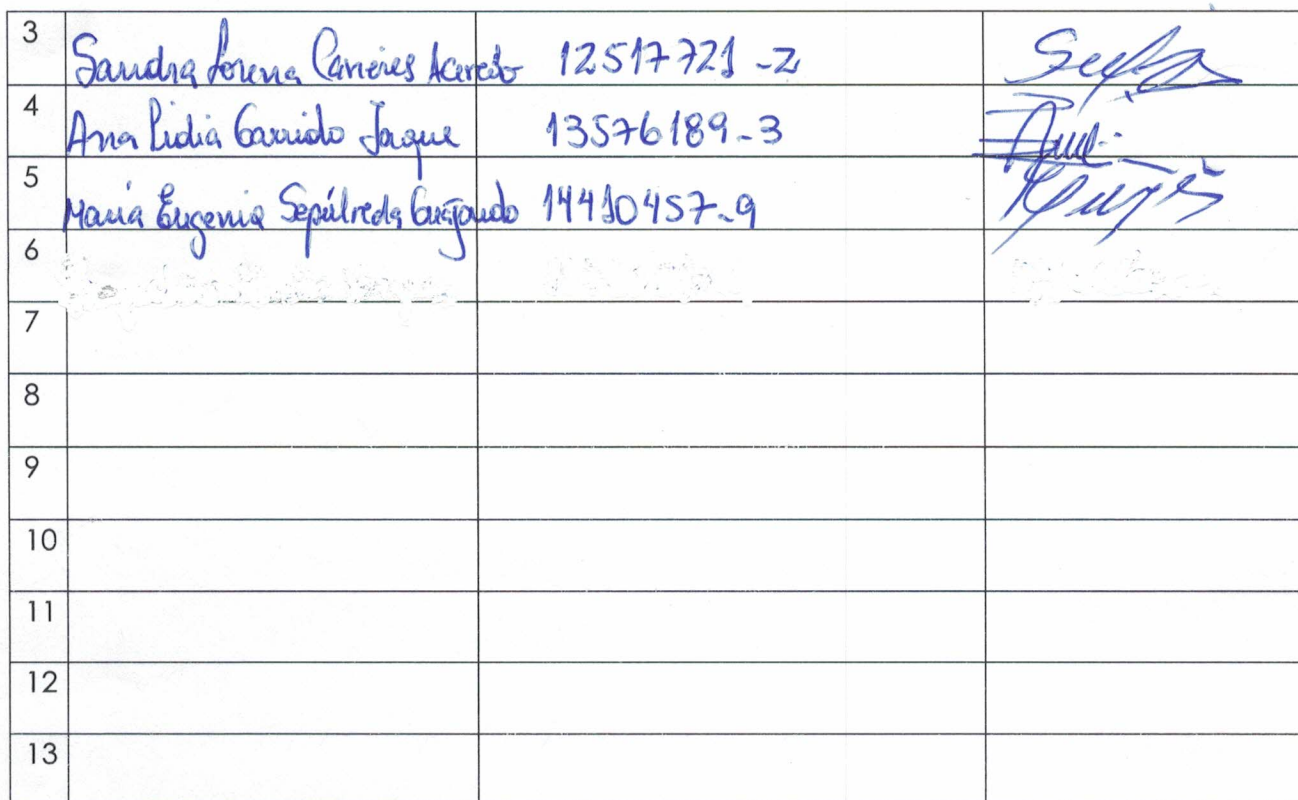 3 Sandra Lorena Carreres Acevedo 12517721-2
4 Ana Lidia Garrido Jaque 13576189-3
5 María Eugenia Sepúlveda Guajardo 14410457-9
6
7
8
9
10
11
12
13